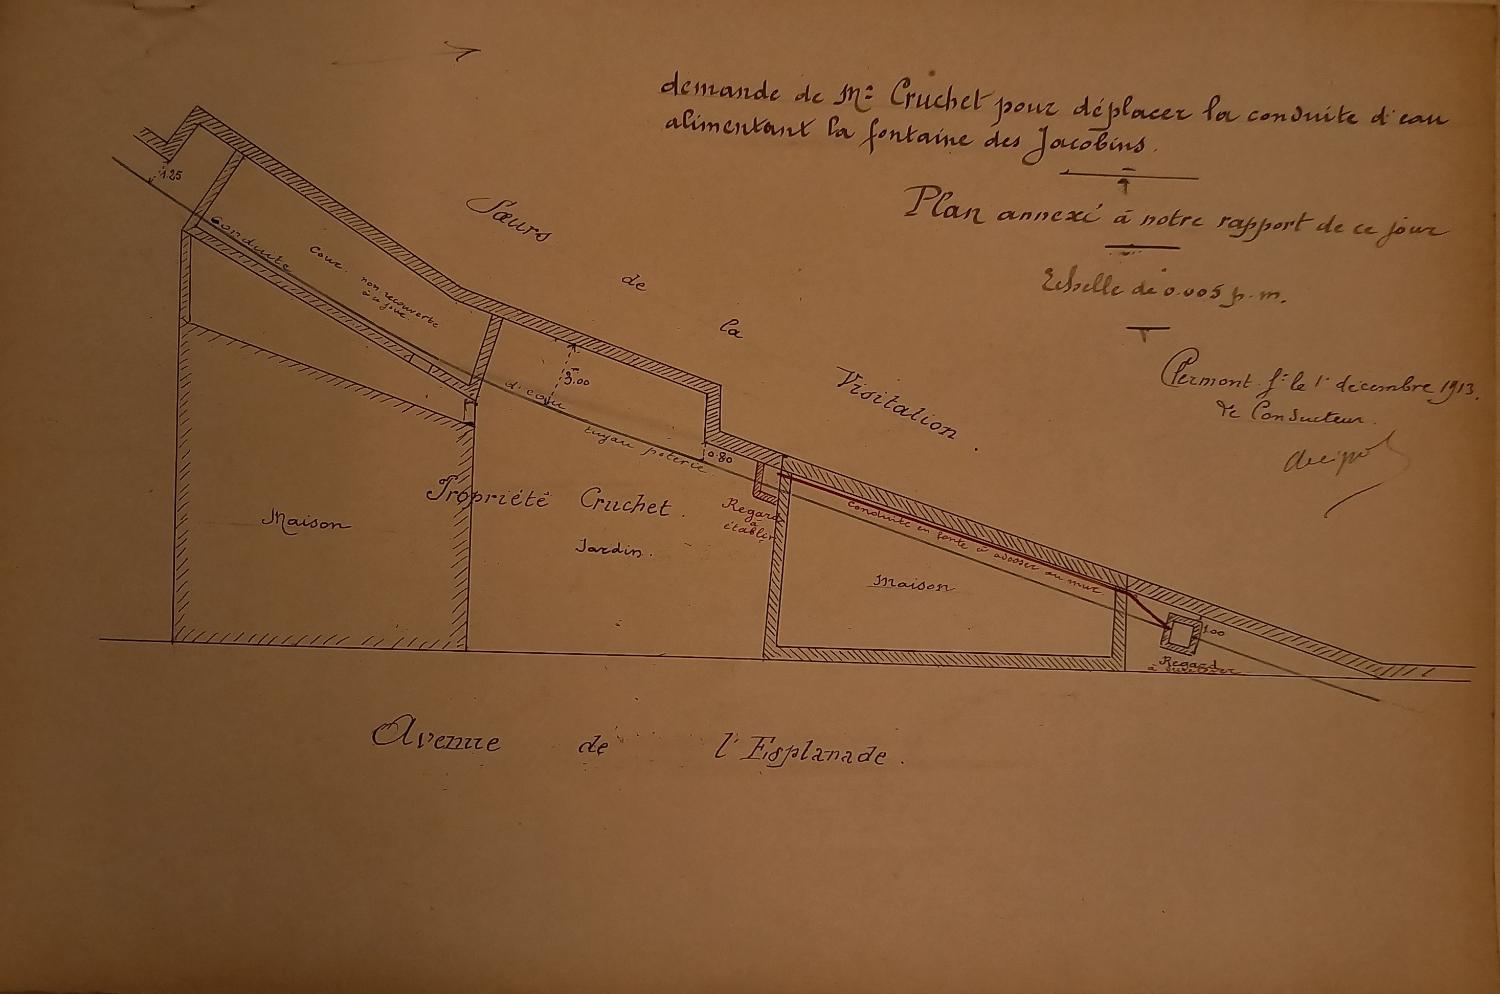 demande de Mr Cruchet pour déplacer la conduite d'eau
alimentant la fontaine des Jacobins.
Plan annexé à notre rapport de ce jour
Echelle de 0.005 p.m.
Clermont Fd le 1r décembre 1913.
le Conducteur.
1.25
Sœurs
de
la
Visitation.
Conduite
d'eau
tuyau poterie
Cour non recouverte
à ce jour
3.00
0.80
Propriété Cruchet.
Maison
Jardin.
Regard
à
établir
conduite en fonte à adosser au mur
Maison
1.00
Regard
Avenue de l'Esplanade.